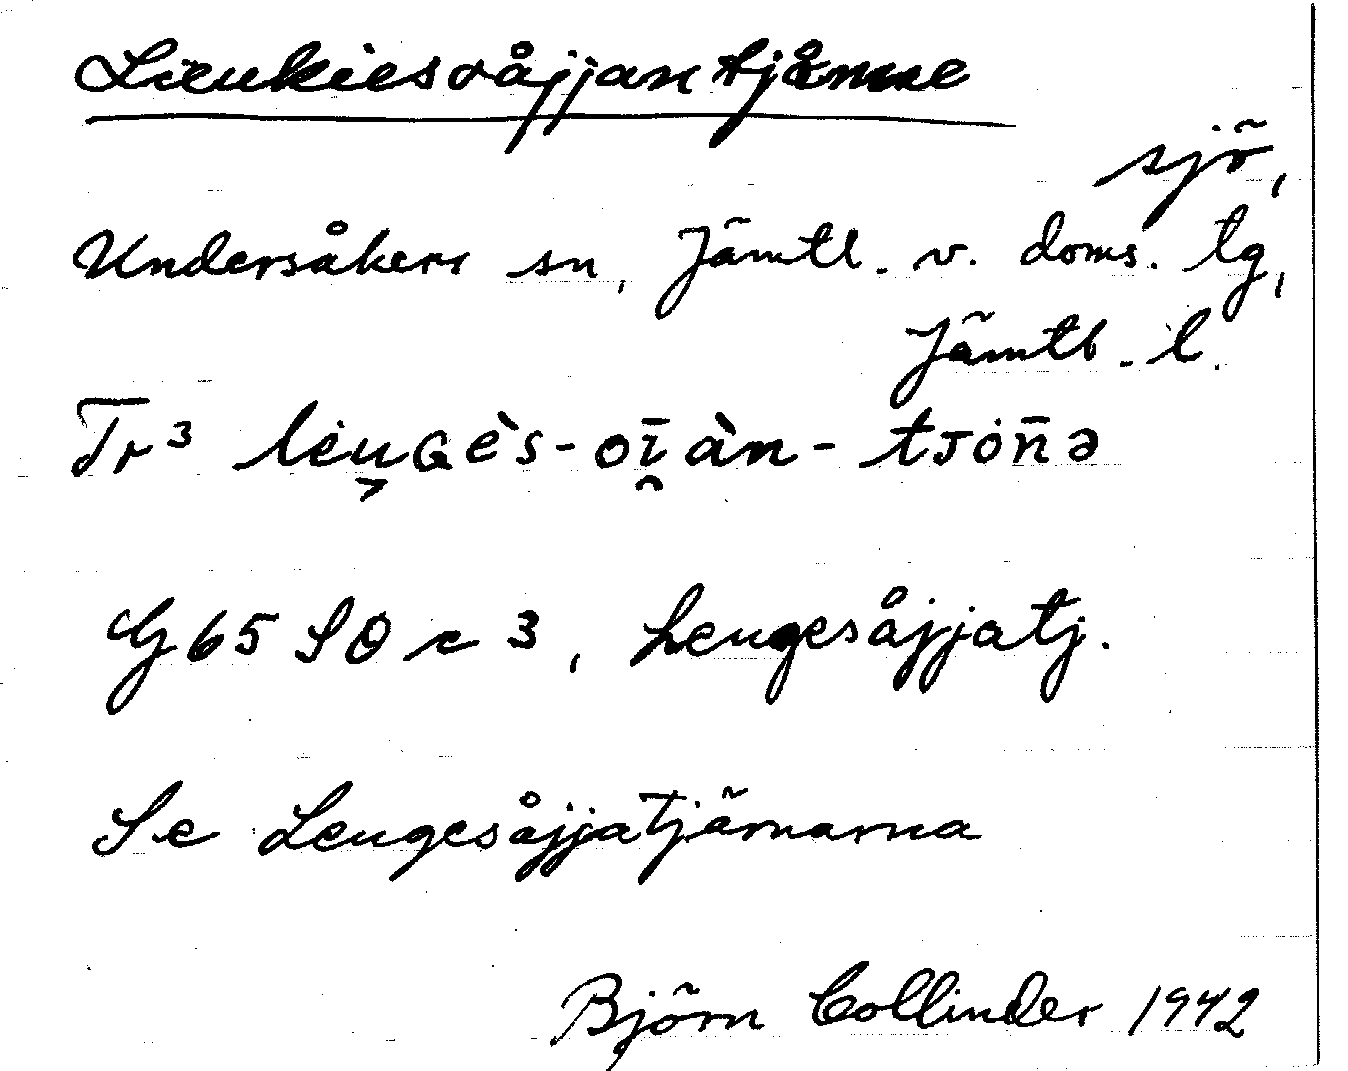 Lieukiesåjjantjåmme
sjö,
Undersåkers sn, Jämtl. v. doms. tg,
Jämtl. l.
Tr³
G 65 SO c 3, Leugesåjjatj.
Se Leugesåjjatjärnarna
Björn Collinder 1942